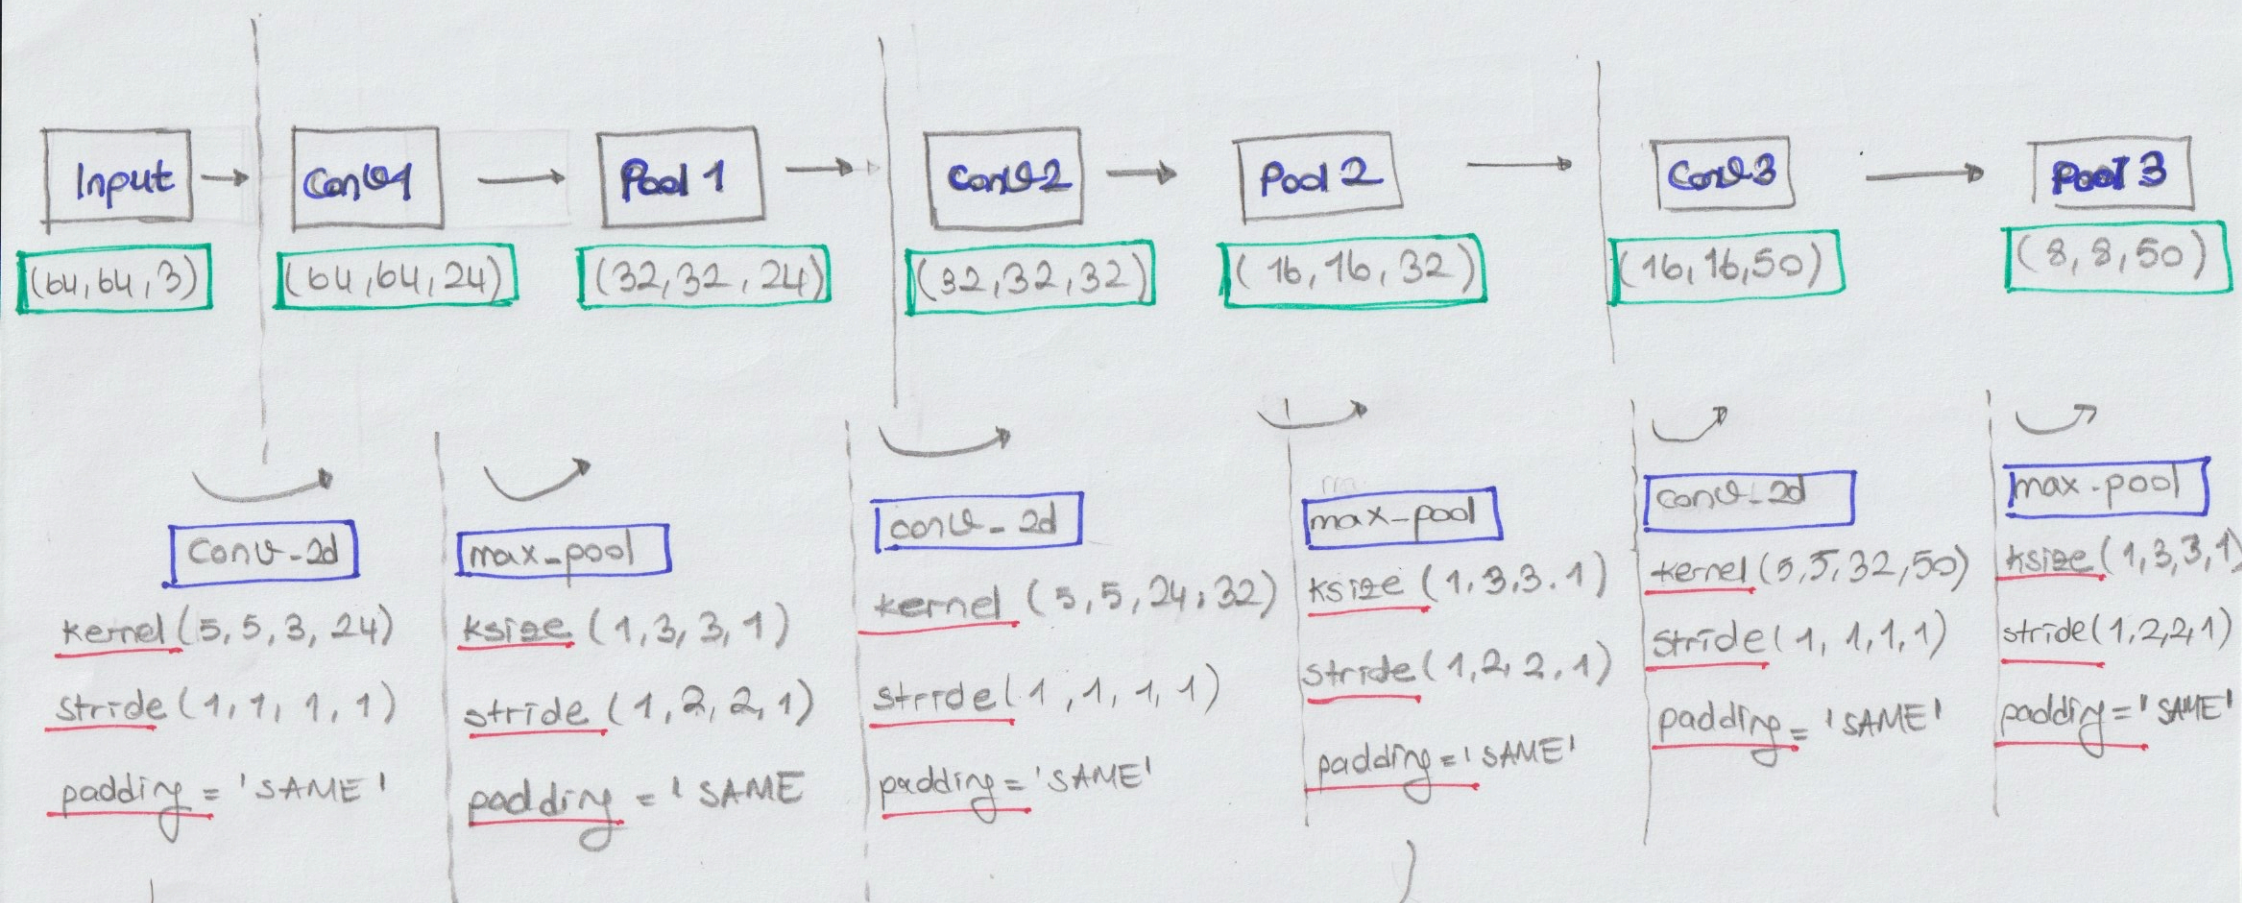 Input
Conv1
Pool 1
Conv2
Pool 2
Conv3
Pool 3
(64,64,3)
(64,64,24)
(32,32,24)
(32,32,32)
(16,16,32)
(16,16,50)
(8,8,50)
conv-2d
kernel (5,5,3,24)
stride (1,1,1,1)
padding = 'SAME'
max-pool
ksize (1,3,3,1)
stride (1,2,2,1)
padding = 'SAME
conv-2d
kernel (5,5,24,32)
stride (1,1,1,1)
padding = 'SAME'
max-pool
ksize (1,3,3.1)
stride (1,2,2,1)
padding = 'SAME'
conv-2d
kernel (5,5,32,50)
stride (1,1,1,1)
padding = 'SAME'
max-pool
ksize (1,3,3,1)
stride (1,2,2,1)
padding = 'SAME'